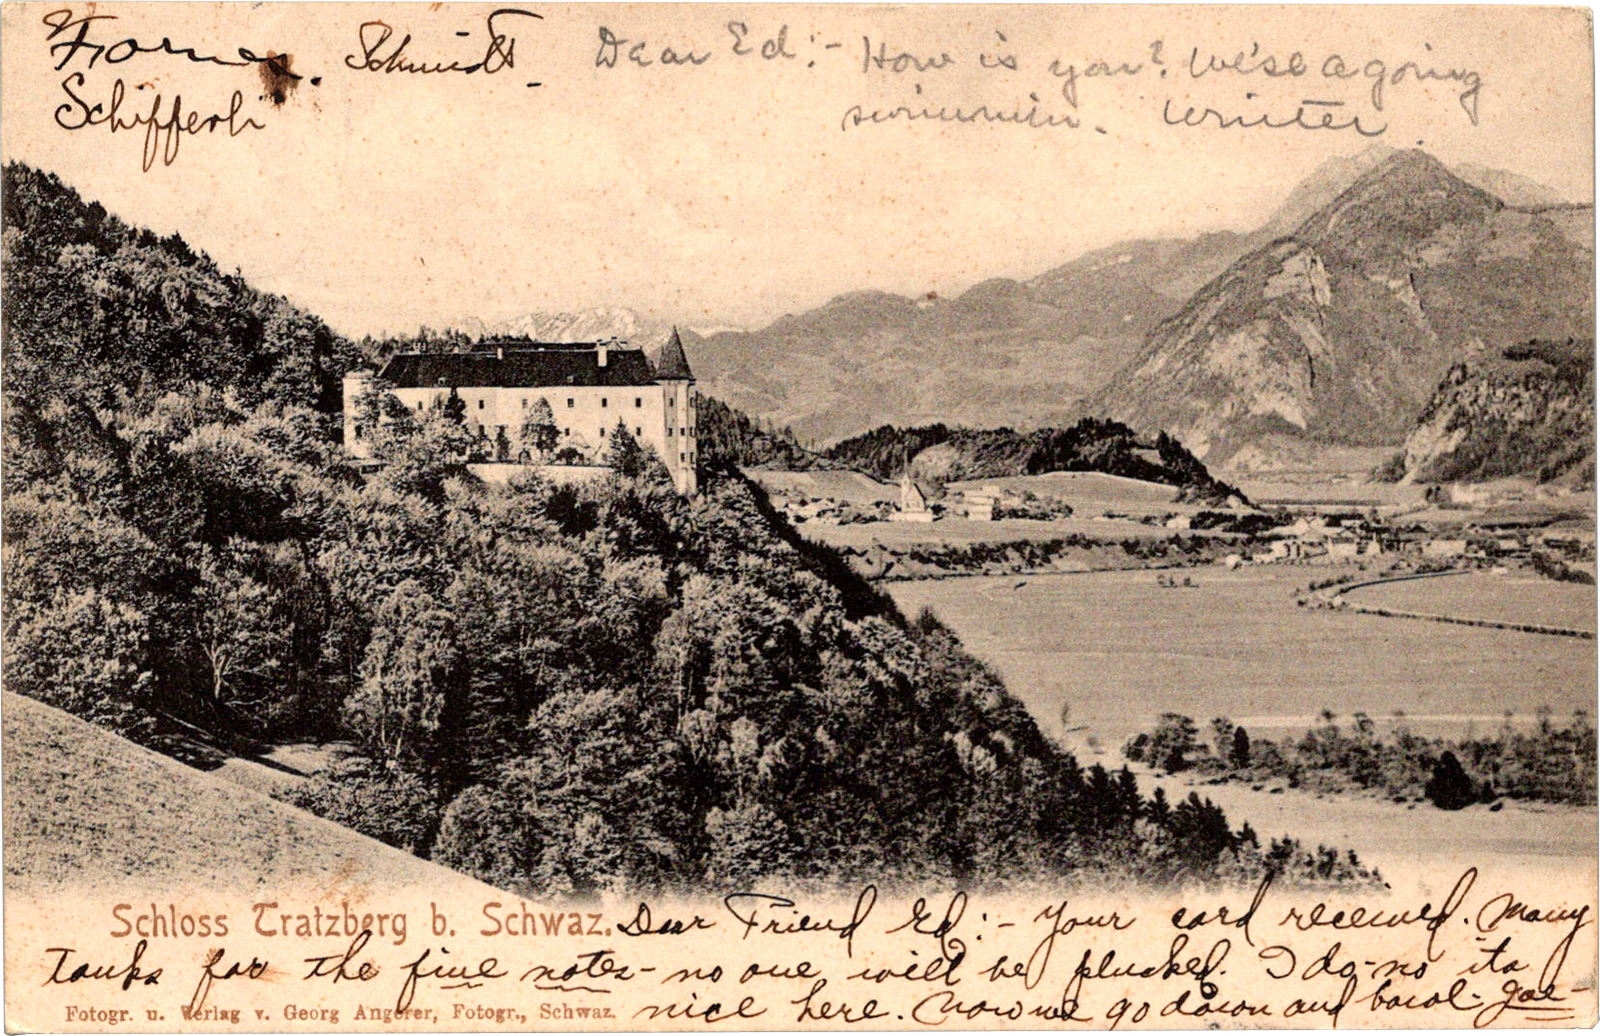 Fornes. Schmidt - Dear Ed:- How is you? We'se a going
Schifferli swimmin. Winter.
Schloss Tratzberg b. Schwaz. Dear Friend Ed:- Your card received. Many
tanks for the fine notes- no one will be plucked. I do-no its
Fotogr. u. Verlag v. Georg Angerer, Fotogr., Schwaz. nice here. Now we go down and bowl- Joe-